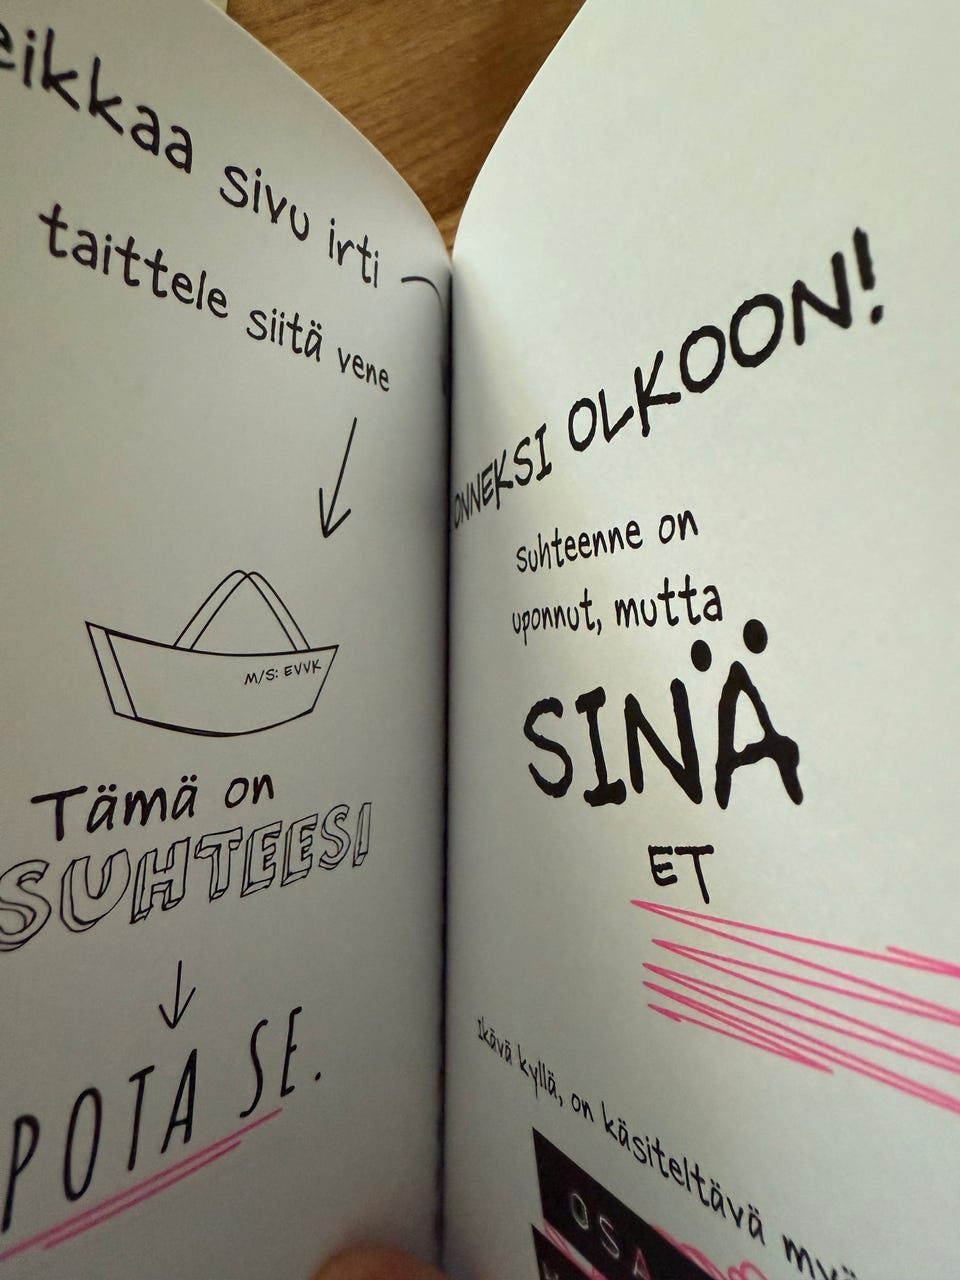 sivu irti
taittele siitä vene
M/S: EVVK
Tämä on
SUHTEESI
SE.
OLKOON!
suhteenne on
uponnut, mutta
SINÄ
ET
Ikävä kyllä, on käsiteltävä
OSA